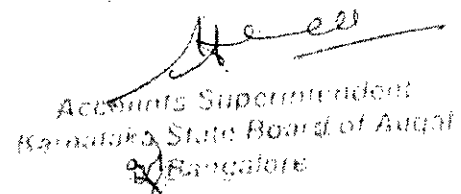 Accounts Superintendent
Karnataka State Board of Auqaf
Bangalore